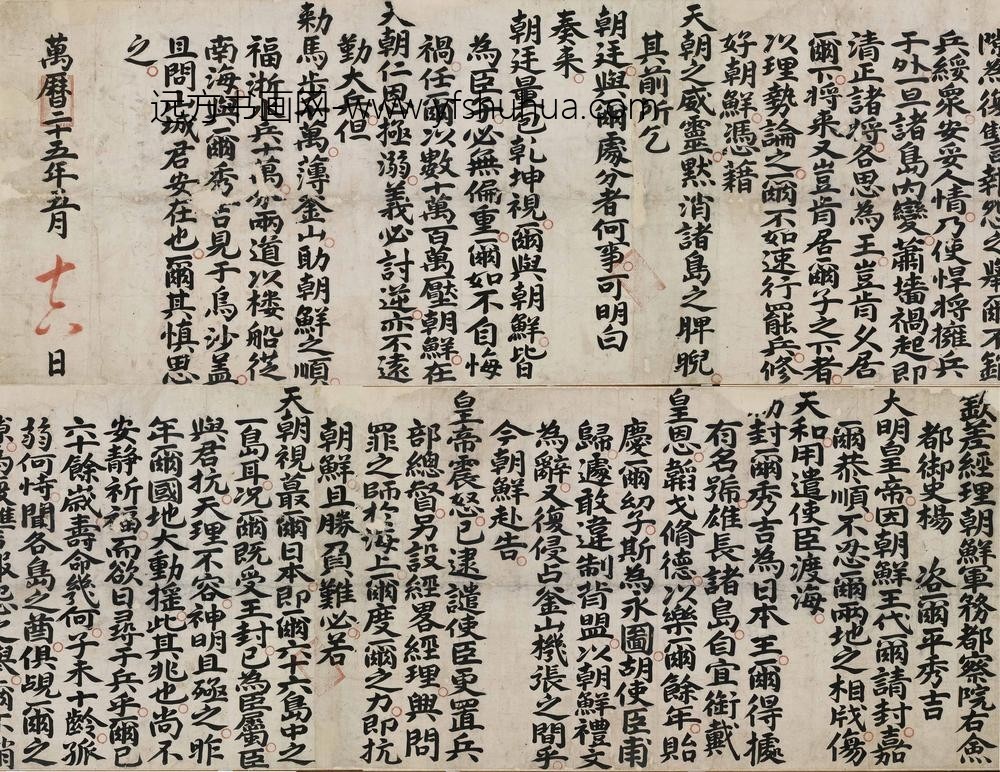 欽差經理朝鮮軍務都察院右僉
都御史楊 咨爾平秀吉
大明皇帝因朝鮮王代爾請封嘉
爾恭順不忍爾兩地之相戕傷
天和用遣使臣渡海
勅封爾秀吉為日本王爾得據
有名號雄長諸島自宜銜戴
皇恩韜戈脩德以樂爾餘年貽
慶爾幼子斯為永圖胡使臣甫
歸遽敢違制背盟以朝鮮禮文
為辭又復侵占釜山機張之間乎
今朝鮮赴告
皇帝震怒已逮譴使臣更置兵
部總督另設經畧經理興問
罪之師於海上爾度爾之力即抗
朝鮮且勝負難必若
天朝視蕞爾日本即爾六十六島中之
一島耳况爾既受王封已為臣屬臣
與君抗天理不容神明且殛之昨
年爾國地大動搖此其兆也尚不
安靜祈福而欲日尋于兵乎爾已
六十餘歲壽命幾何子未十齡孤
弱何恃聞各島之酋俱覘爾之
隙為復讐報怨之舉爾不卸
兵綏衆安妥人情乃使悍將擁兵
于外一旦諸島内變蕭墻禍起即
清正諸將各思為王豈肯久居
爾下將来又豈肯居爾子之下者
以理勢論之爾不如速行罷兵修
好朝鮮憑藉
天朝之威靈默消諸島之脾睨
其前所乞
朝廷與爾處分者何事可明白
奏来
朝廷量包乾坤視爾與朝鮮皆
為臣子必無偏重爾如不自悔
禍任爾以數十萬百萬壓朝鮮在
天朝仁恩拯溺義必討逆亦不遠
勤大兵但
勅馬步萬薄釜山助朝鮮之順
福浙兵十萬分兩道以楼船從
南海與爾秀吉見于烏沙盖
且問山城君安在也爾其慎思
之
萬曆二十五年五月十六日
远方书画网 www.yfshuhua.com